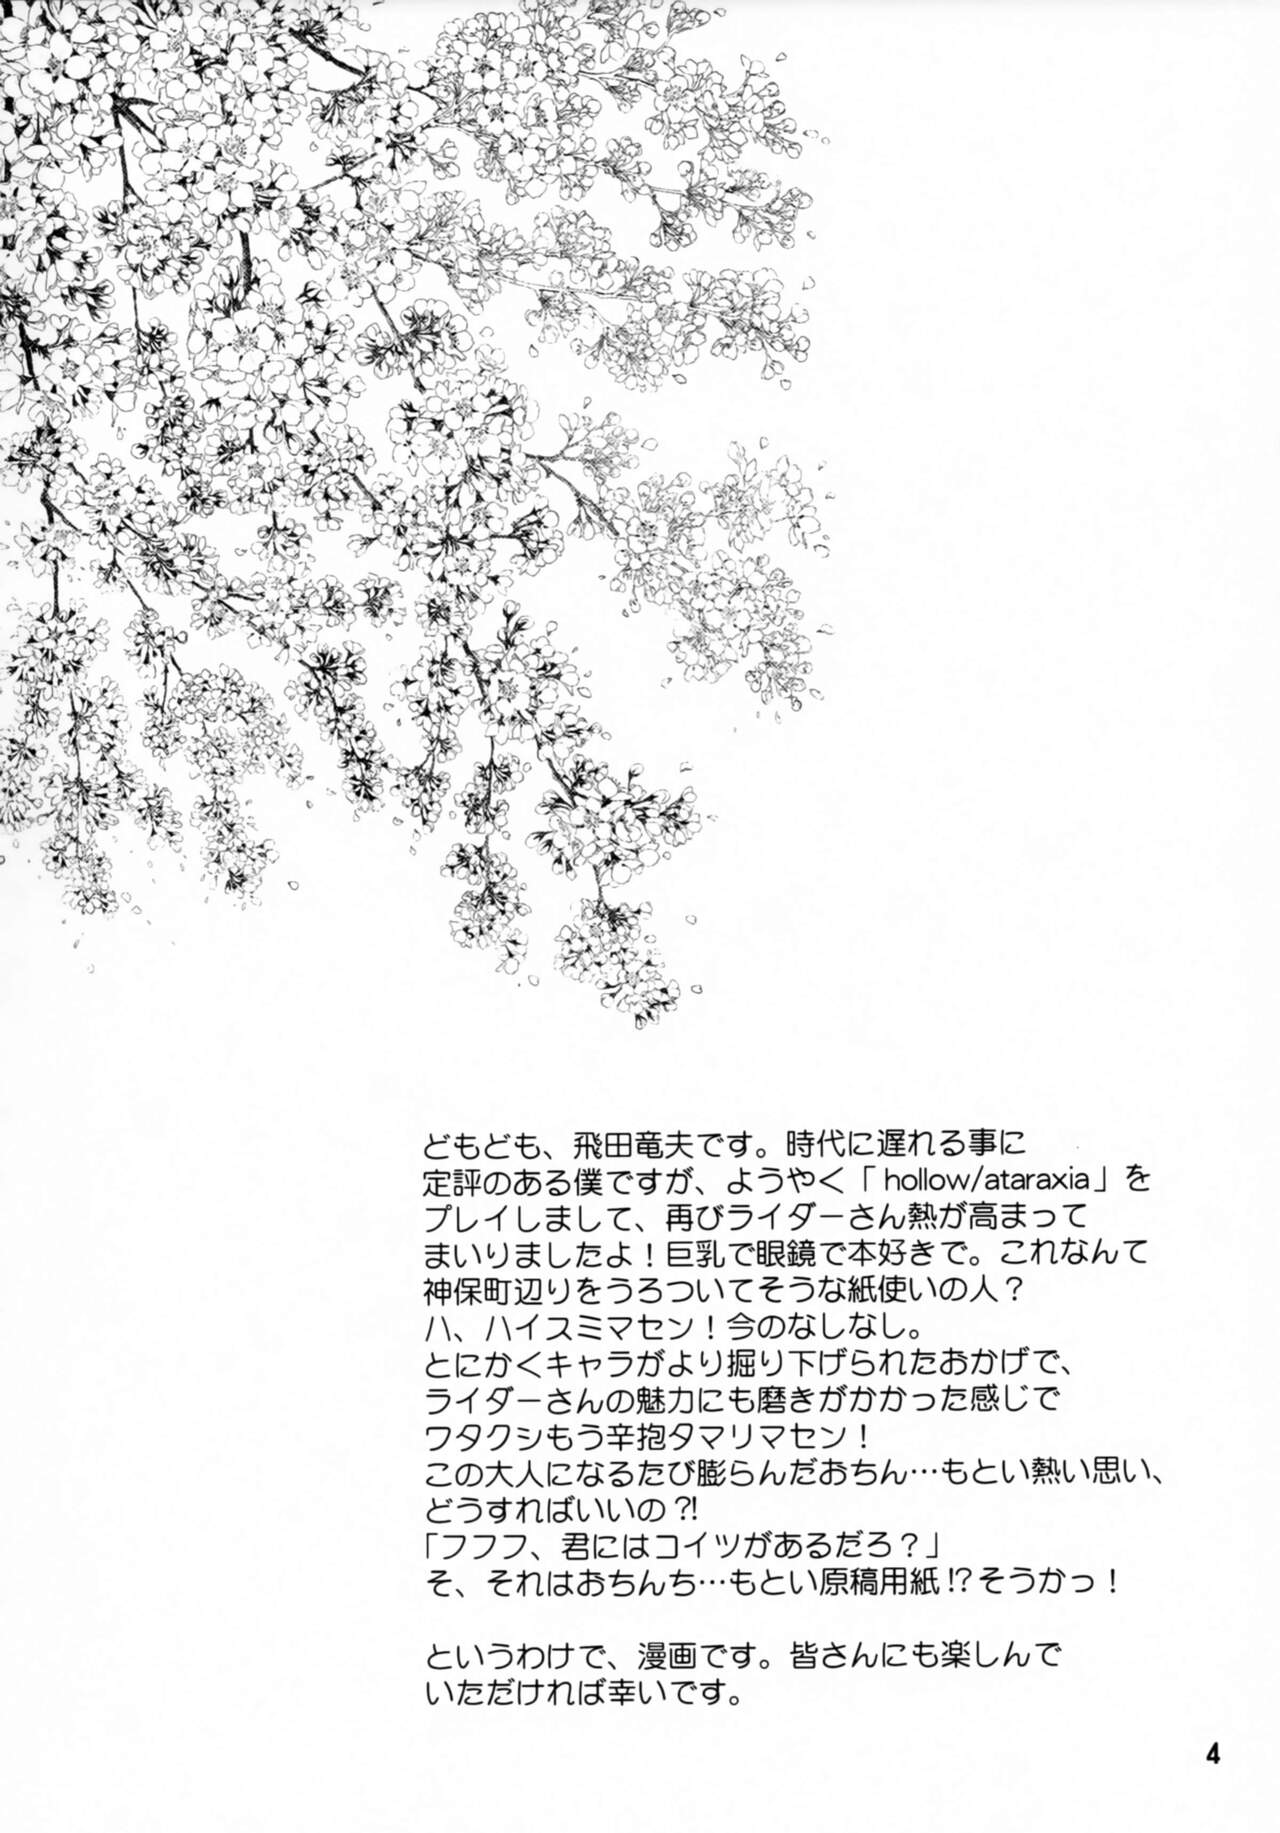 どもども、飛田竜夫です。時代に遅れる事に
定評のある僕ですが、ようやく「hollow/ataraxia」を
プレイしまして、再びライダーさん熱が高まって
まいりましたよ！巨乳で眼鏡で本好きで。これなんて
神保町辺りをうろついてそうな紙使いの人？
ハ、ハイスミマセン！今のなしなし。
とにかくキャラがより掘り下げられたおかげで、
ライダーさんの魅力にも磨きがかかった感じで
ワタクシもう辛抱タマリマセン！
この大人になるたび膨らんだおちん…もとい熱い思い、
どうすればいいの?!
「フフフ、君にはコイツがあるだろ？」
そ、それはおちんち…もとい原稿用紙!?そうかっ！
というわけで、漫画です。皆さんにも楽しんで
いただければ幸いです。
4